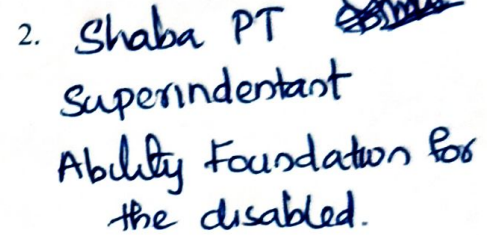 2. Shaba PT
Superindentant
Ability Foundation for
the disabled.